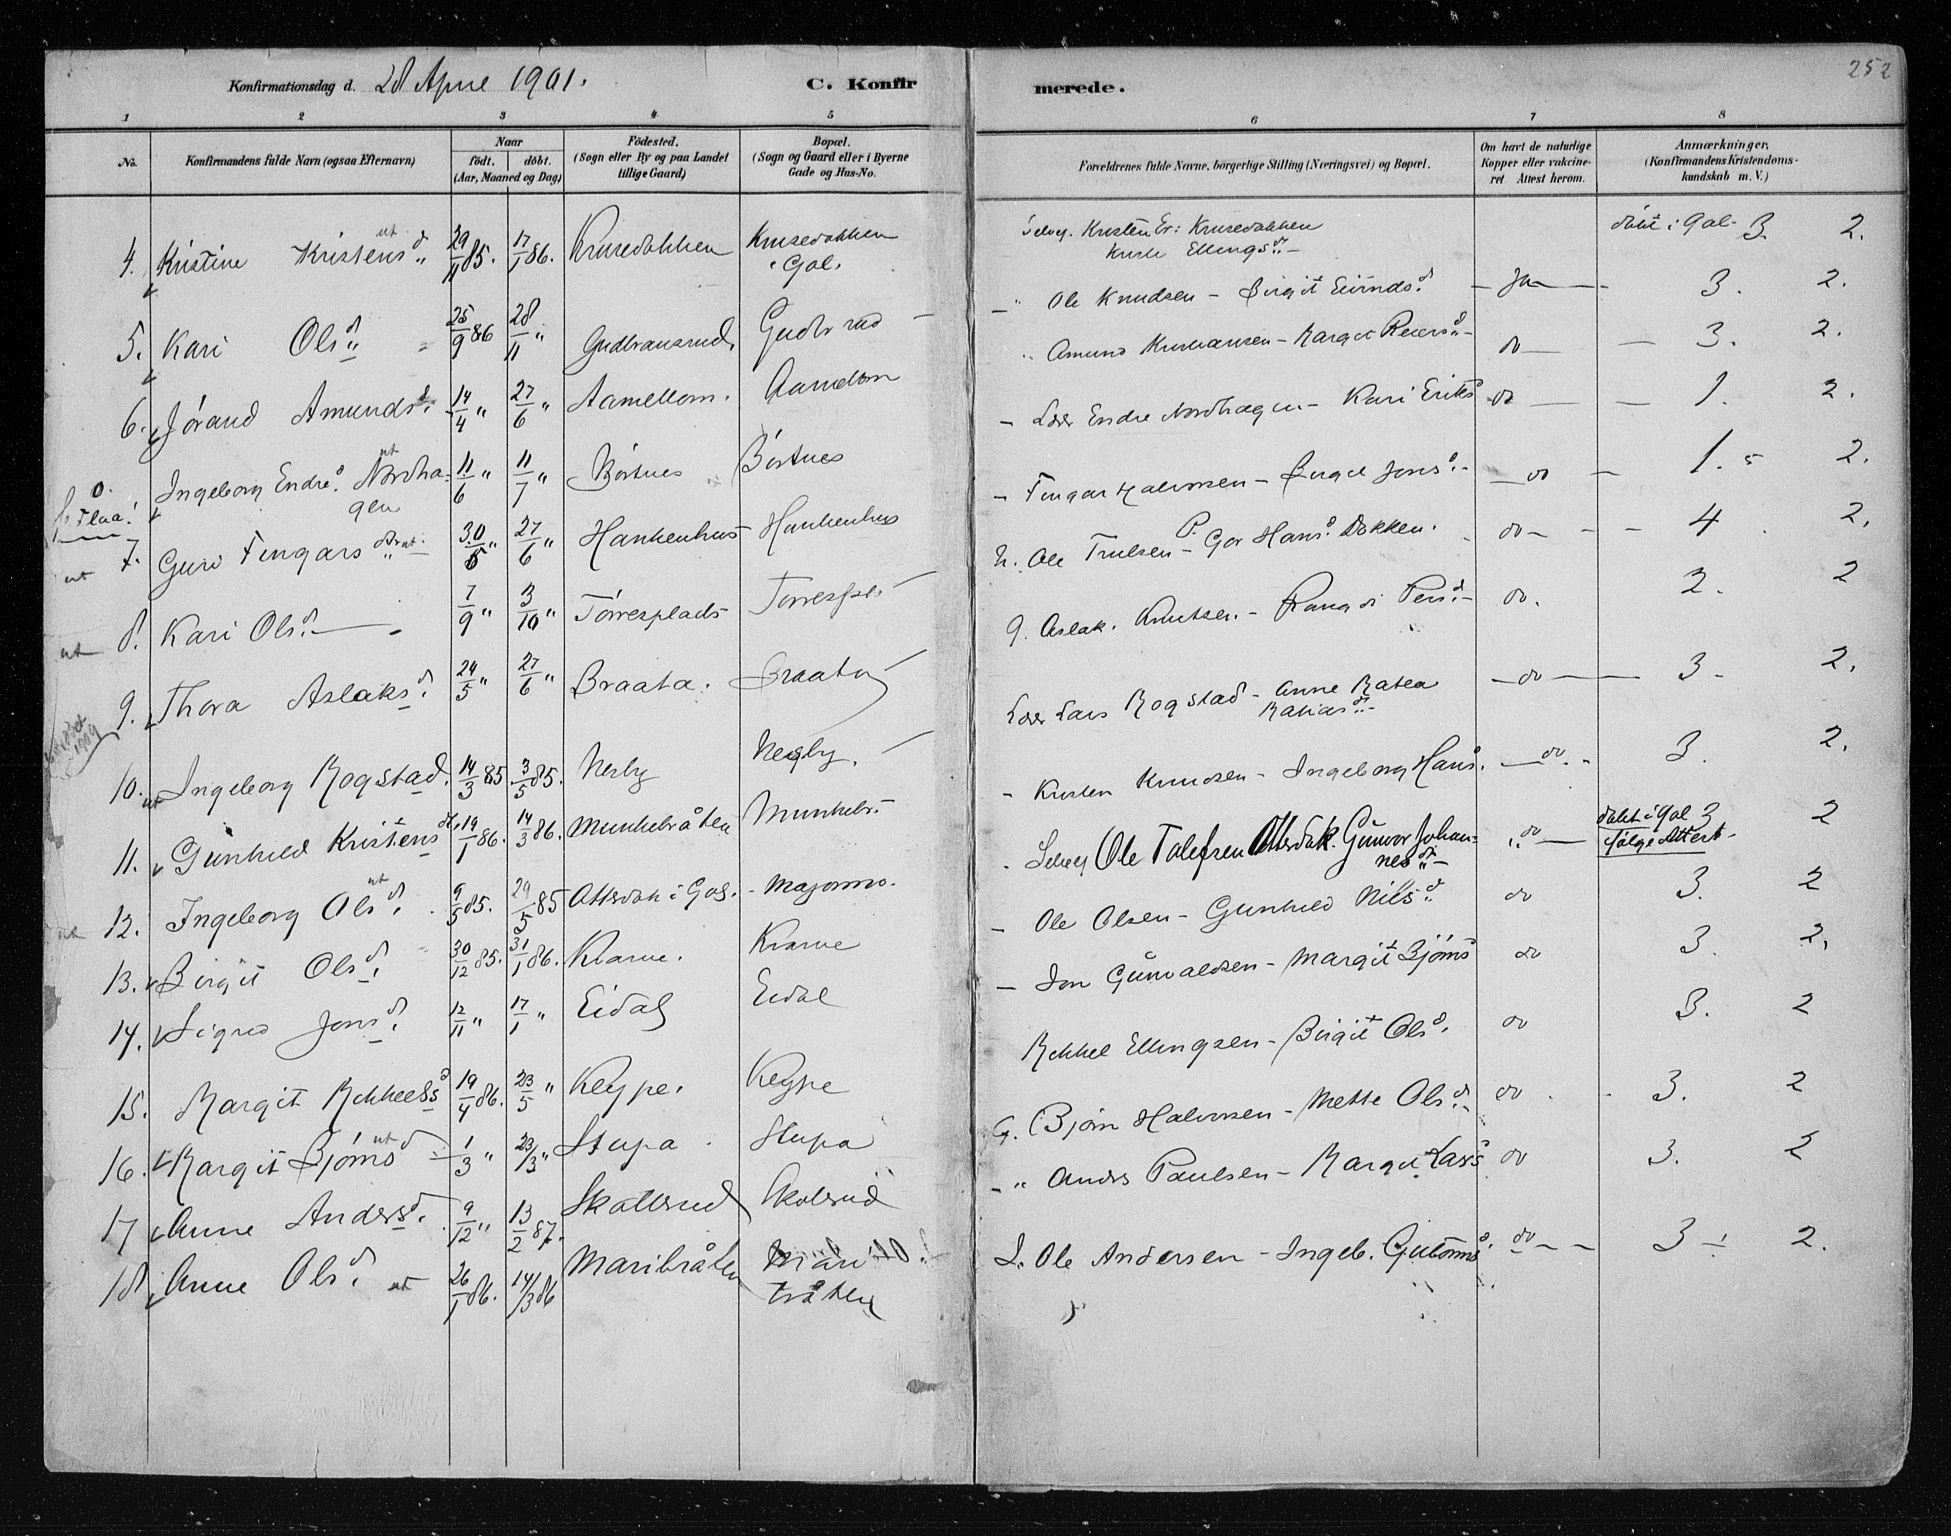 252
Konfirmationsdag d. 28 April 1901. C. Konfir merede.
1 2 3 4 5 6 7 8
No. Konfirmandens fulde Navn (ogsaa Efternavn) Naar født. døbt. (Aar, Maaned og Dag) Fødested. (Sogn eller By og paa Landet tillige Gaard) Bopæl. (Sogn og Gaard eller i Byerne Gade og Hus-No. Forældrenes fulde Navne, borgerlige Stilling (Næringsvei) og Bopæl. Om havt de naturlige Kopper eller vakcineret. Attest herom. Anmærkninger, (Konfirmandens Kristendomskundskab m. V.)
4. Kristine Kristensd. ut 29/11 85. 17/1 86. Krusedokken Krusedokken Gol. Selvej. Kristen Er: Krusedokken Ellingsd. døbt i Gol 3. 2.
5. Kari Olsd. 25/9 86 28/11 " Gudbransrud Gudbr rud — " Ole Knudsen - Birgit Eivindsd. Ja 3. 2.
6. Jørand Amundsd. 14/4 " 27/6 " Aamellom. Aamellom " Amund Kristiansen - Margit Reiersd. do 3. 2.
Ingeborg Endresd. Nordhagen ut 11/6 " 11/7 " Børtnes Børtnes - Endre Nordhagen - Kari Eriksd do 1. 2.
Flaa!
7. Guro Fingarsdtr ut 30/5 " 27/6 " Hankenhus Hankenhus - Fingar Halvorsen - Birgit Jonsd. do 1. 2.
ut 8. Kari Olsd. 7/9 " 3/10 " Tørresplads Torrespl — H. Ole Trulsen - P. Gor Hansd. Dokken. do 4 2.
ut 9. Thora Aslaksd. 24/5 " 27/6 " Braata. Braata G. Aslak Knutsen. - Rangdi Persd. do. 2. 2
1909
10. ut Ingeborg Rogstad. 14/3 85 3/5 85. Nerby Nesby. Lars Rogstad - Anne Matea Matiasd. do 3 2.
11. Gunhild Kristensd. 19/1 86. 14/3 86. Munkebråten Munkebr - Kristen Knudsen - Ingeborg Hansd. do. 3. 2.
ut 12. Ingeborg Olsd. ut 9/5 85. 29/5 85 Attersdok i Gol. Majormo. - Selvej Ole Tolefsen Attersdok. Gunvor Johannesd. do døbt i Gol 3 følge Attest. 2
13. Birgit Olsd. 30/12 85. 31/1 86. Kvarve. Kvarve - Ole Olsen - Gunhild Nilsd. do 3. 2
14. Sigrid Jonsd. 12/11 " 17/1 " Eidal Eidal - Jon Gunvaldsen - Margit Bjørns do 3. 2.
15. Margit Mekkelsd 19/4 86. 23/5 " Kleype. Kleype Mekkel Ellingsen - Birgit Olsd. do 3. 2
16. Margit Bjørnsd ut 1/3 " 23/3 " Stupa Stupa G. Bjørn Halvorsen - Mette Olsd. do 3. 2
17 Anne Andersd. 9/12 " 13/2 87. Skollerud Skolerud - " Anders Paulsen - Margit Larss do 3. 2
18. Anne Olsd. ut 26/1 86. 14/3 86 Maribråten Mari bråten L. Ole Andersen - Ingeb. Gutormsd. do 3 2.